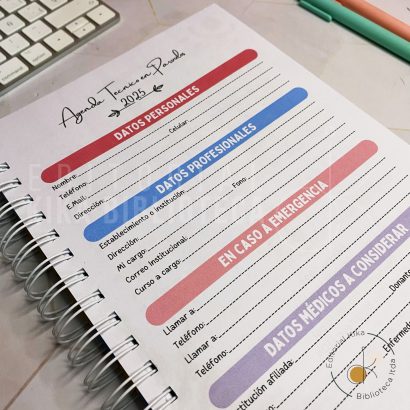 Agenda Tecnico en Parvulos
2025
DATOS PERSONALES
Nombre:
Teléfono: Celular:
E.Mail:
Dirección:
DATOS PROFESIONALES
Establecimiento o institución:
Dirección: Fono:
Mi cargo:
Correo institucional:
Curso a cargo:
EN CASO A EMERGENCIA
Llamar a:
Teléfono:
Llamar a:
Teléfono:
DATOS MÉDICOS A CONSIDERAR
stitución afiliada: Donante
Enferme
Editorial Kika
Biblioteca ltda